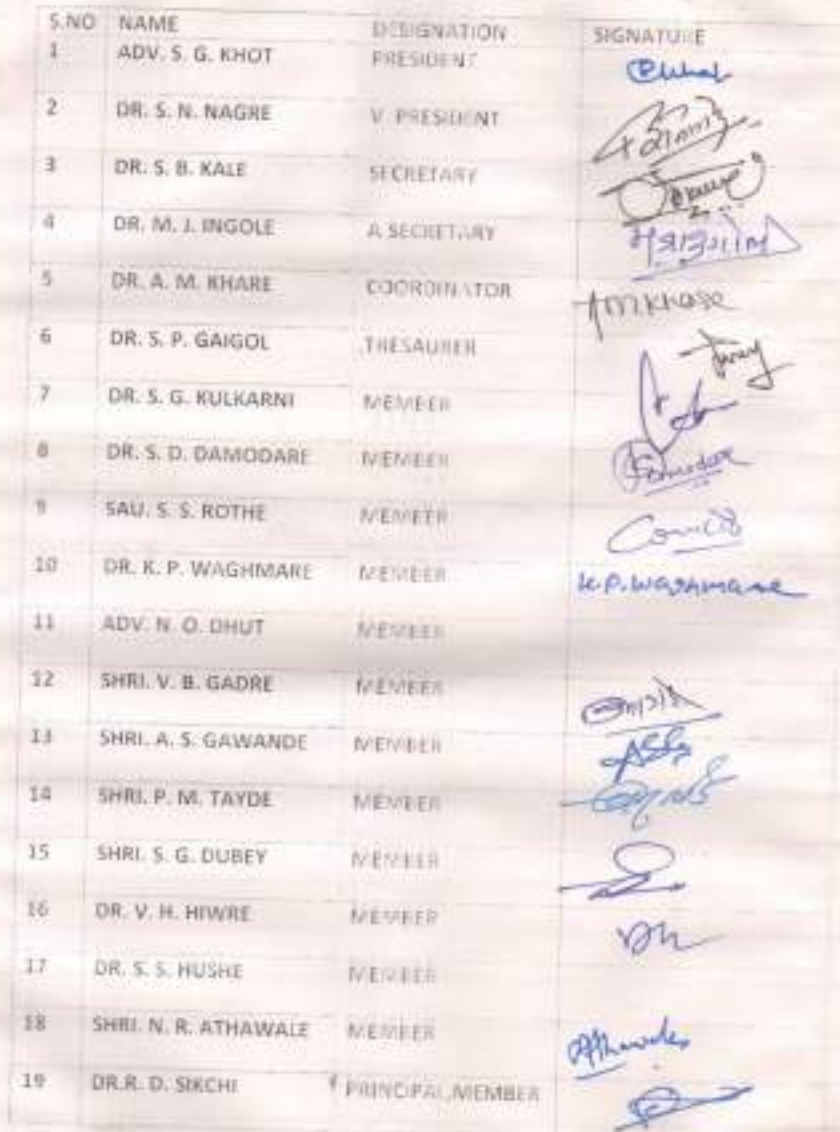 S.NO NAME DESIGNATION SIGNATURE
1 ADV. S. G. KHOT PRESIDENT
2 DR. S. N. NAGRE V. PRESIDENT
3 DR. S. B. KALE SECRETARY
4 DR. M. J. INGOLE A SECRETARY
5 DR. A. M. KHARE COORDINATOR AM.Khare
6 DR. S. P. GAIGOL THESAURER
7 DR. S. G. KULKARNI MEMBER
8 DR. S. D. DAMODARE MEMBER
9 SAU. S. S. ROTHE MEMBER
10 DR. K. P. WAGHMARE MEMBER K.P.Waghmare
11 ADV. N. O. DHUT MEMBER
12 SHRI. V. B. GADRE MEMBER
13 SHRI. A. S. GAWANDE MEMBER
14 SHRI. P. M. TAYDE MEMBER
15 SHRI. S. G. DUBEY MEMBER
16 DR. V. H. HIWRE MEMBER
17 DR. S. S. HUSHE MEMBER
18 SHRI. N. R. ATHAWALE MEMBER
19 DR.R. D. SIKCHI PRINCIPAL,MEMBER